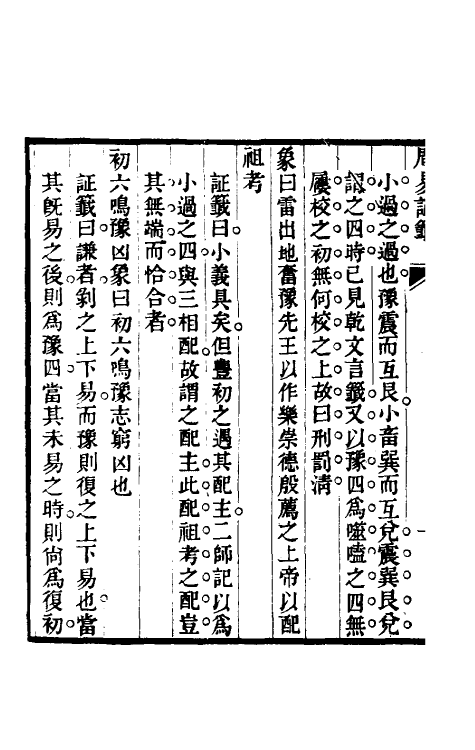 周易証籤
小過之過也豫震而互艮小畜巽而互兌震巽艮兌
謂之四時已見乾文言籤又以豫四爲噬嗑之四無
屨校之初無何校之上故曰刑罰淸
象曰雷出地奮豫先王以作樂崇德殷薦之上帝以配
祖考
証籤曰小義具矣但豐初之遇其配主二師記以爲
小過之四與三相配故謂之配主此配祖考之配豈
其無端而恰合者
初六鳴豫凶象曰初六鳴豫志窮凶也
証籤曰謙者剝之上下易而豫則復之上下易也當
其旣易之後則爲豫四當其未易之時則尙爲復初